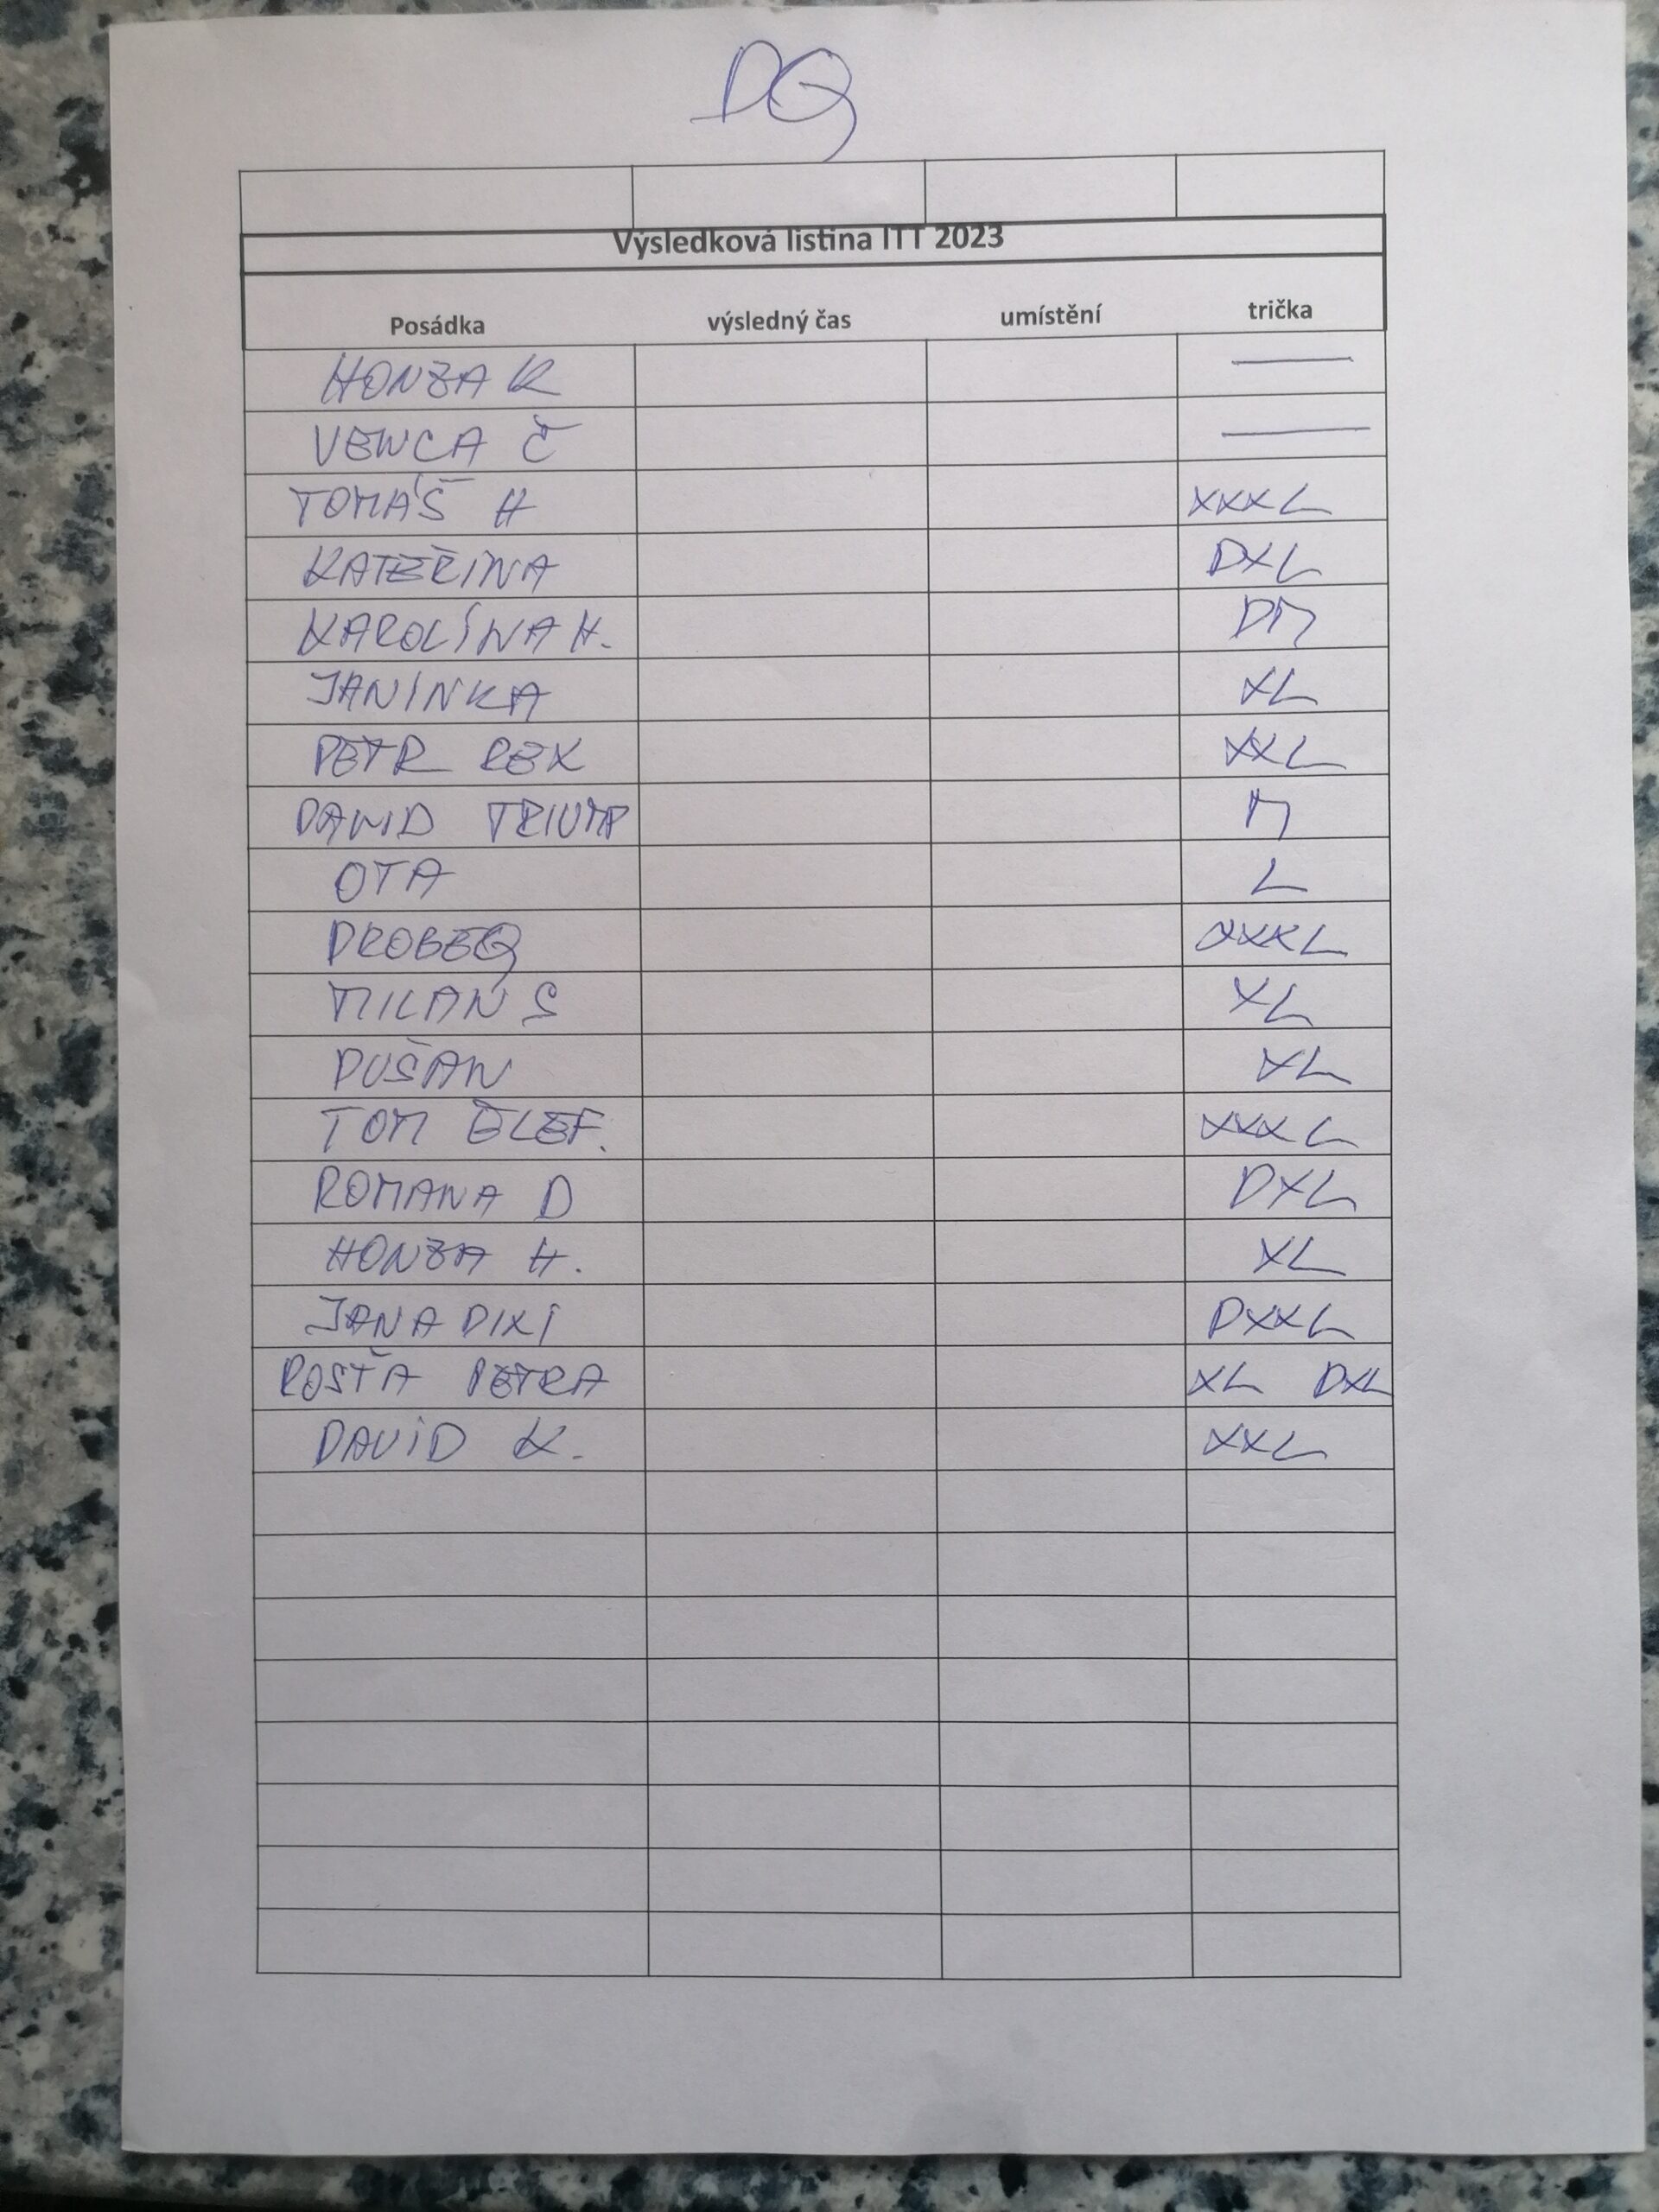 DQ
Výsledková listina ITT 2023
Posádka výsledný čas umístění trička
HONZA K —
VENCA Č —
TOMÁŠ H XXXL
KATEŘINA DXL
KAROLÍNA H. DM
JANINKA XL
PETR REX XXL
DAVID TRIUMP M
OTA L
DROBEQ XXXL
MILAN S XL
DUŠAN XL
TOM ELEF. XXXL
ROMANA D DXL
HONZA H. XL
JANA DIXI DXXL
ROSŤA PETRA XL DXL
DAVID K. XXL